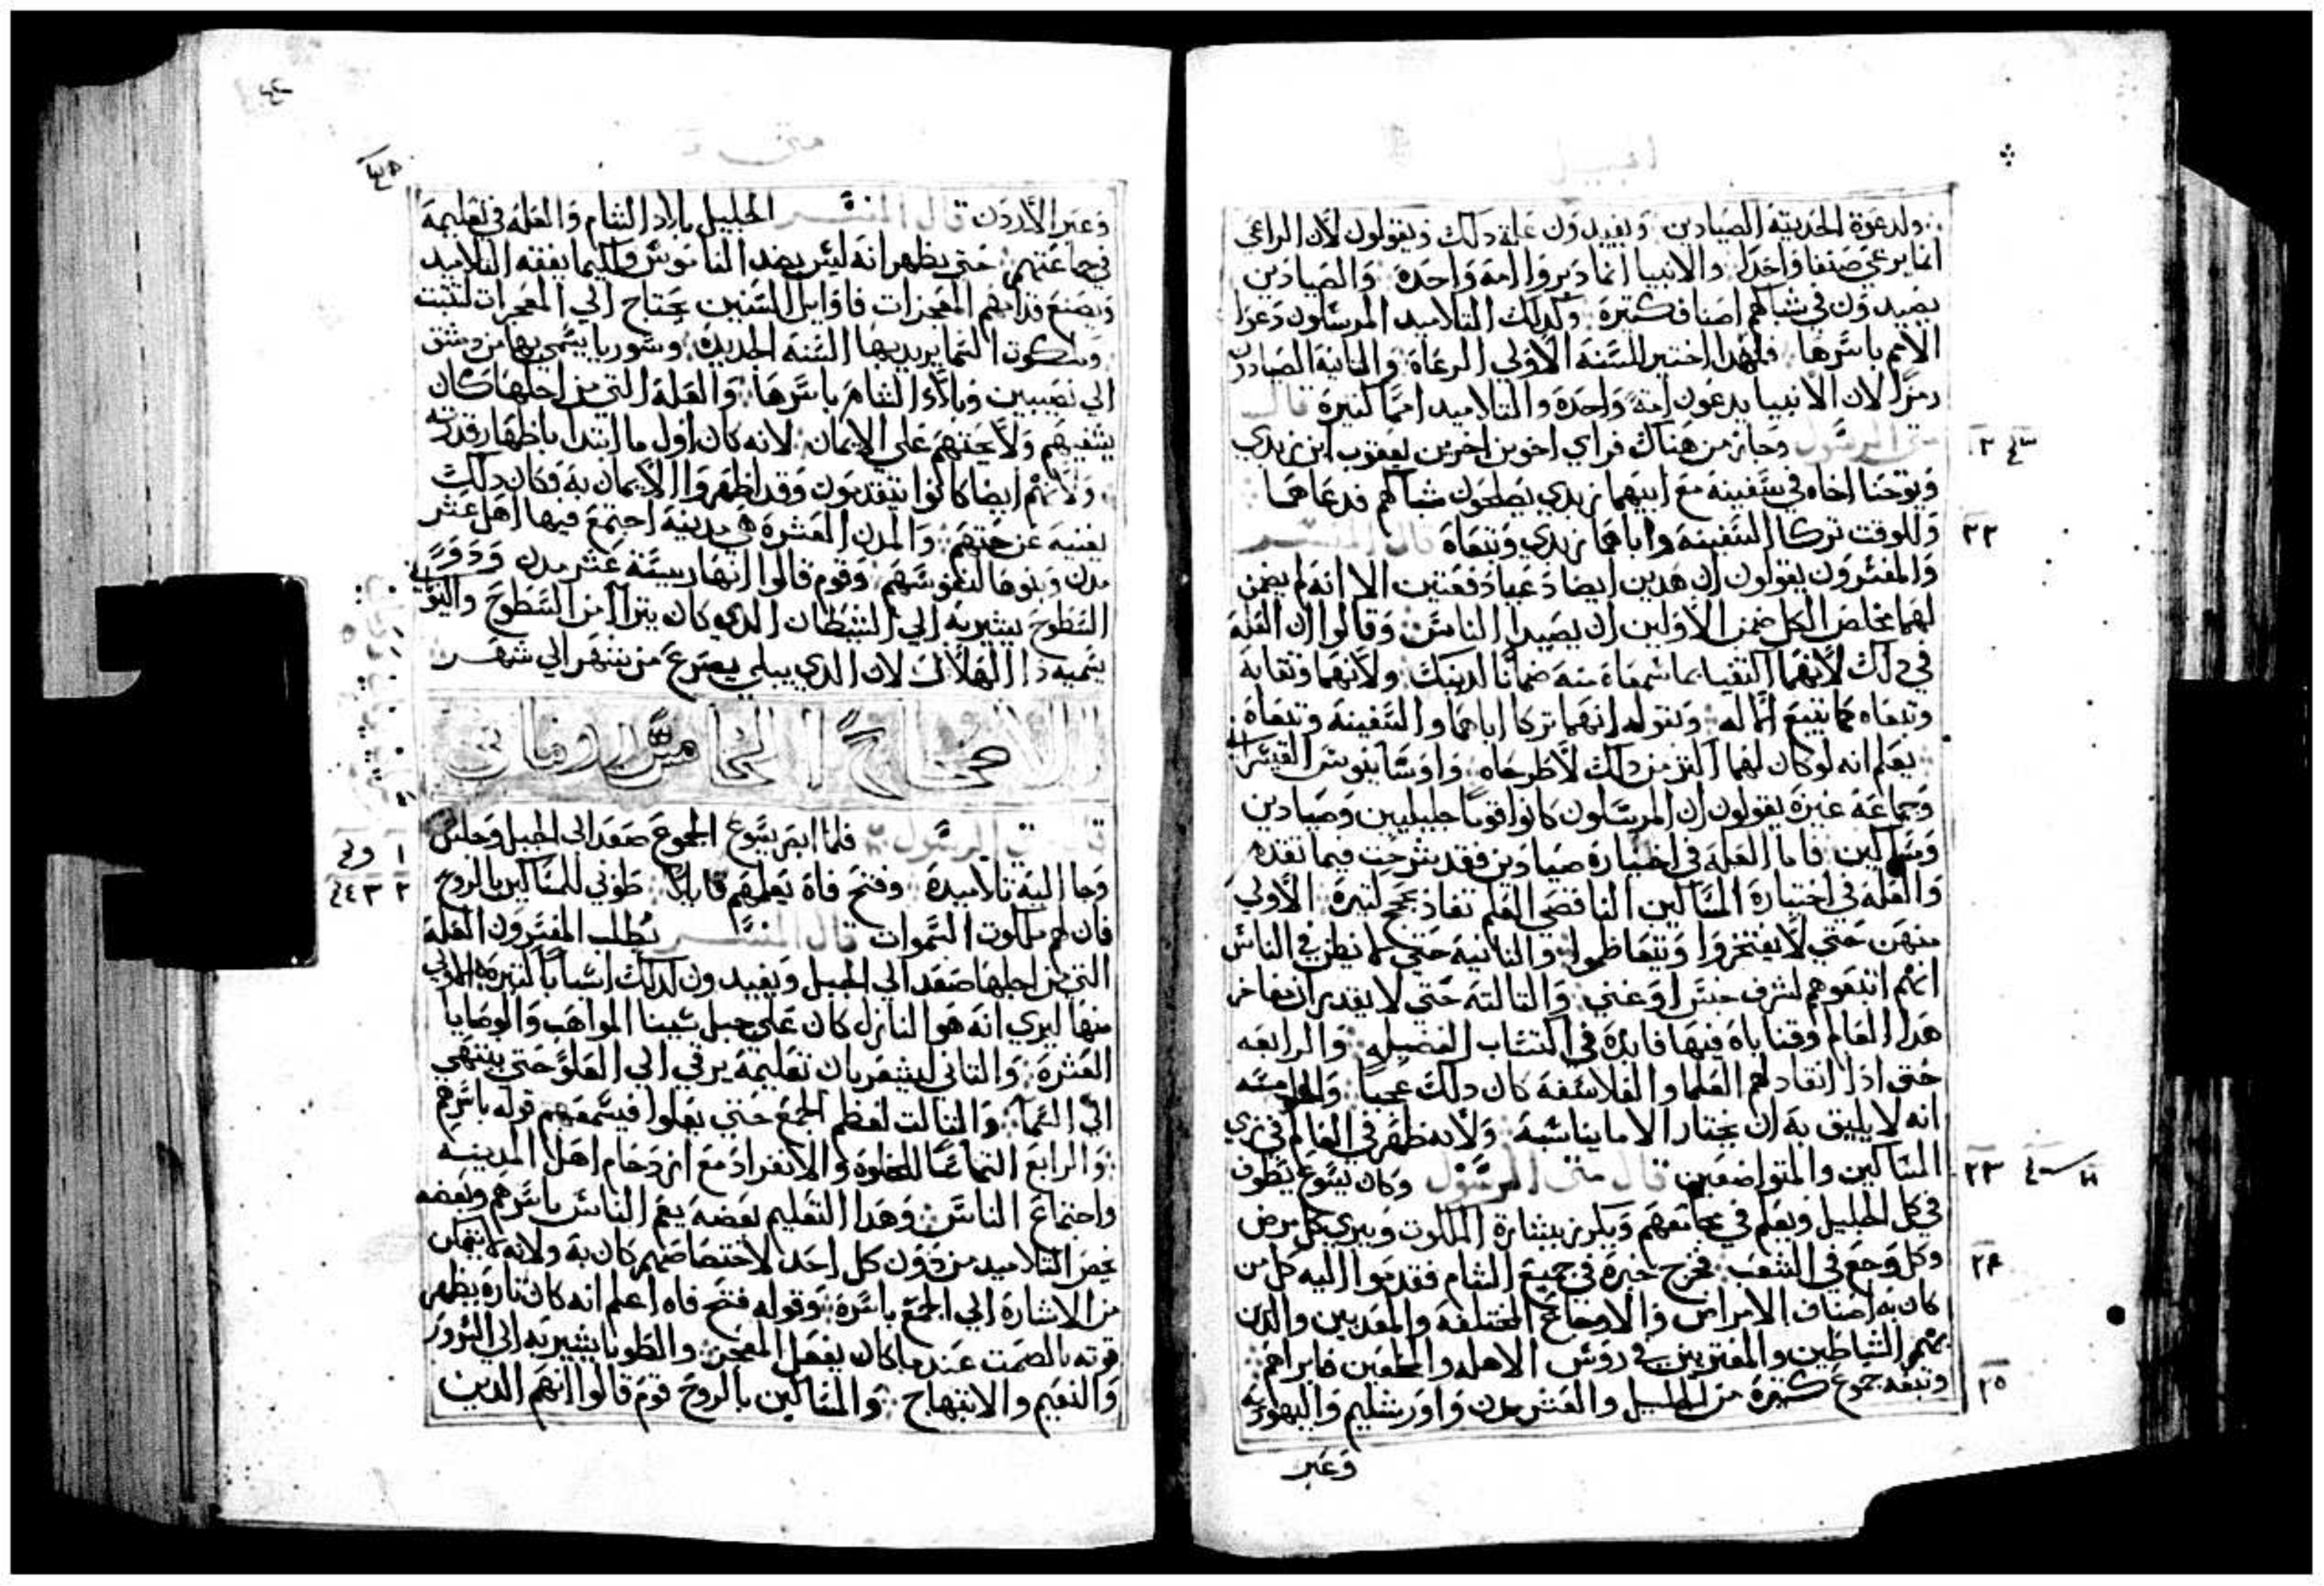 انجيل
ولدعوة الحديثة الصيادين ويفيدون علة دلك ويقولون لان الراعي
انما يرعي صنفا واحدا والانبيا انما دبروا امة واحدة والصيادين
يصيدون في شباكهم اصناف كثيرة وكدلك التلاميد المرسلون دعوا
الامم باسرها فلهدا اختير للسنة الاولي الرعاة والثانية الصيادين
رمزا لان الانبيا يدعون امة واحدة والتلاميد امما كثيرة قال
متى الرسول وجاز من هناك فراي اخوين اخرين يعقوب ابن زبدي
ويوحنا اخاه في سفينة مع ابيهما زبدي يصلحون شباكهم فدعاهما
وللوقت تركا السفينة واباهما زبدي وتبعاه قال المفسر
والمفسرون يقولون ان هدين ايضا دعيا دفعتين الا انه لم يضمن
لهما مخلص الكل ضمن الاولين ان يصيدا الناس وقالوا ان العلة
في دلك لانهما اكتفيا بما سمعاه منه ضمانا لدينك ولانهما وثقا به
وتبعاه كما يتبع الاله وبقوله انهما تركا اباهما والسفينة وتبعاه
يعلم انه لو كان لهما اكثر من دلك لاطرحاه واوسابيوس القيسراني
وجماعة غيره يقولون ان المرسلون كانوا قوما جليليين وصيادين
ومساكين فاما العلة في اختياره صيادين فقد شرحت فيما تقدم
والعلة في اختياره المساكين الناقصي العلم تفاد بحجج كثيرة الاولي
منهن حتي لا يفتخروا ويتعاظموا والثانية حتي لا يظن في الناس
انهم اتبعوهم لشرف جنس او غني والثالثة حتي لا يقدر ان مفاخر
هدا العالم وقنياته فيها فايدة في اكتساب الفضيلة والرابعه
حتي ادا انقاد لهم العلما والفلاسفة كان دلك عجبا والخامسه
انه لا يليق به ان يختار الا ما يناسبه ولانه ظهر في العالم في زي
المساكين والمتواضعين قال متى الرسول وكان يسوع يطوف
في كل الجليل ويعلم في مجامعهم ويكرز ببشارة الملكوت ويبري كل مرض
وكل وجع في الشعب فخرج خبره في جميع الشام فقدموا اليه كل من
كان به اصناف الامراض والاوجاع المختلفة والمعدبين والدين
بهم الشياطين والمعتريين في رووس الاهله والمخلعين فابراهم
وتبعه جموع كثيرة من الجليل والعشر مدن واورشليم واليهوديه
وعبر
٢٢
٢٣
٢٤
٢٥
متى
وعبر الاردن قال المفسر الجليل بلاد الشام والعلة في تعليمه
في جماعتهم حتي يظهر انه ليس بضد الناموس وكيما يفقه التلاميد
ويصنع قدامهم المعجزات فاوايل السنين يحتاج الي المعجزات لتثبت
وملكوت السما يريد بها السنة الجديدة وسوريا يسمي بها من دمشق
الي نصيبين وبلاد الشام باسرها والعلة التي من اجلها كان
يشفيهم ولا يحثهم علي الايمان لانه كان اول ما ابتدا باظهار قدرته
ولانهم ايضا كانوا يتقدمون وقد اظهروا الايمان به فكان دلك
يغنيه عن حثهم والمدن العشرة هي مدينة اجتمع فيها اهل عشر
مدن وبنوها لنفوسهم وقوم قالوا انها رييسة عشر مدن ودوي
السطوح يشير به الي الشيطان الدي كان يترآ من السطوح واليونا
يسميه دا الهلال لان الدي يبلي يصرع من شهر الي شهر
الاصحاح الخامس روماني
قال متى الرسول فلما ابصر يسوع الجموع صعد الى الجبل وجلس
وجا اليه تلاميدة وفتح فاه يعلمهم قايلا طوبي للمساكين بالروح
فان لهم ملكوت السموات قال المفسر يطلب المفسرون العلة
التي من اجلها صعد الي الجبل ويفيدون لدلك اسبابا كثيرة الاولي
منها ليري انه هو النازل كان علي جبل سينا المواهب والوصايا
العشرة والثاني ليشعر بان تعليمه يرقي الي العلو حتي ينتهي
الي السما والثالث لعظم الجمع حتي يعلوا فيسمعهم قوله باسرهم
والرابع التماسا للخلوة والانفراد مع ازدحام اهل المدينه
واجتماع الناس وهدا التعليم بعضه يعم الناس باسرهم وبعضه
يخص التلاميد من دون كل احد لاختصاصهم كان به ولانه لا يتمكن
من الاشارة الي الجمع باسره وقوله فتح فاه اعلم انه كان تارة يظهر
قوته بالصمت عند ما كان يفعل المعجز والطوبا يشير به الي السرور
والنعيم والابتهاج والمساكين بالروح قوم قالوا انهم الدين